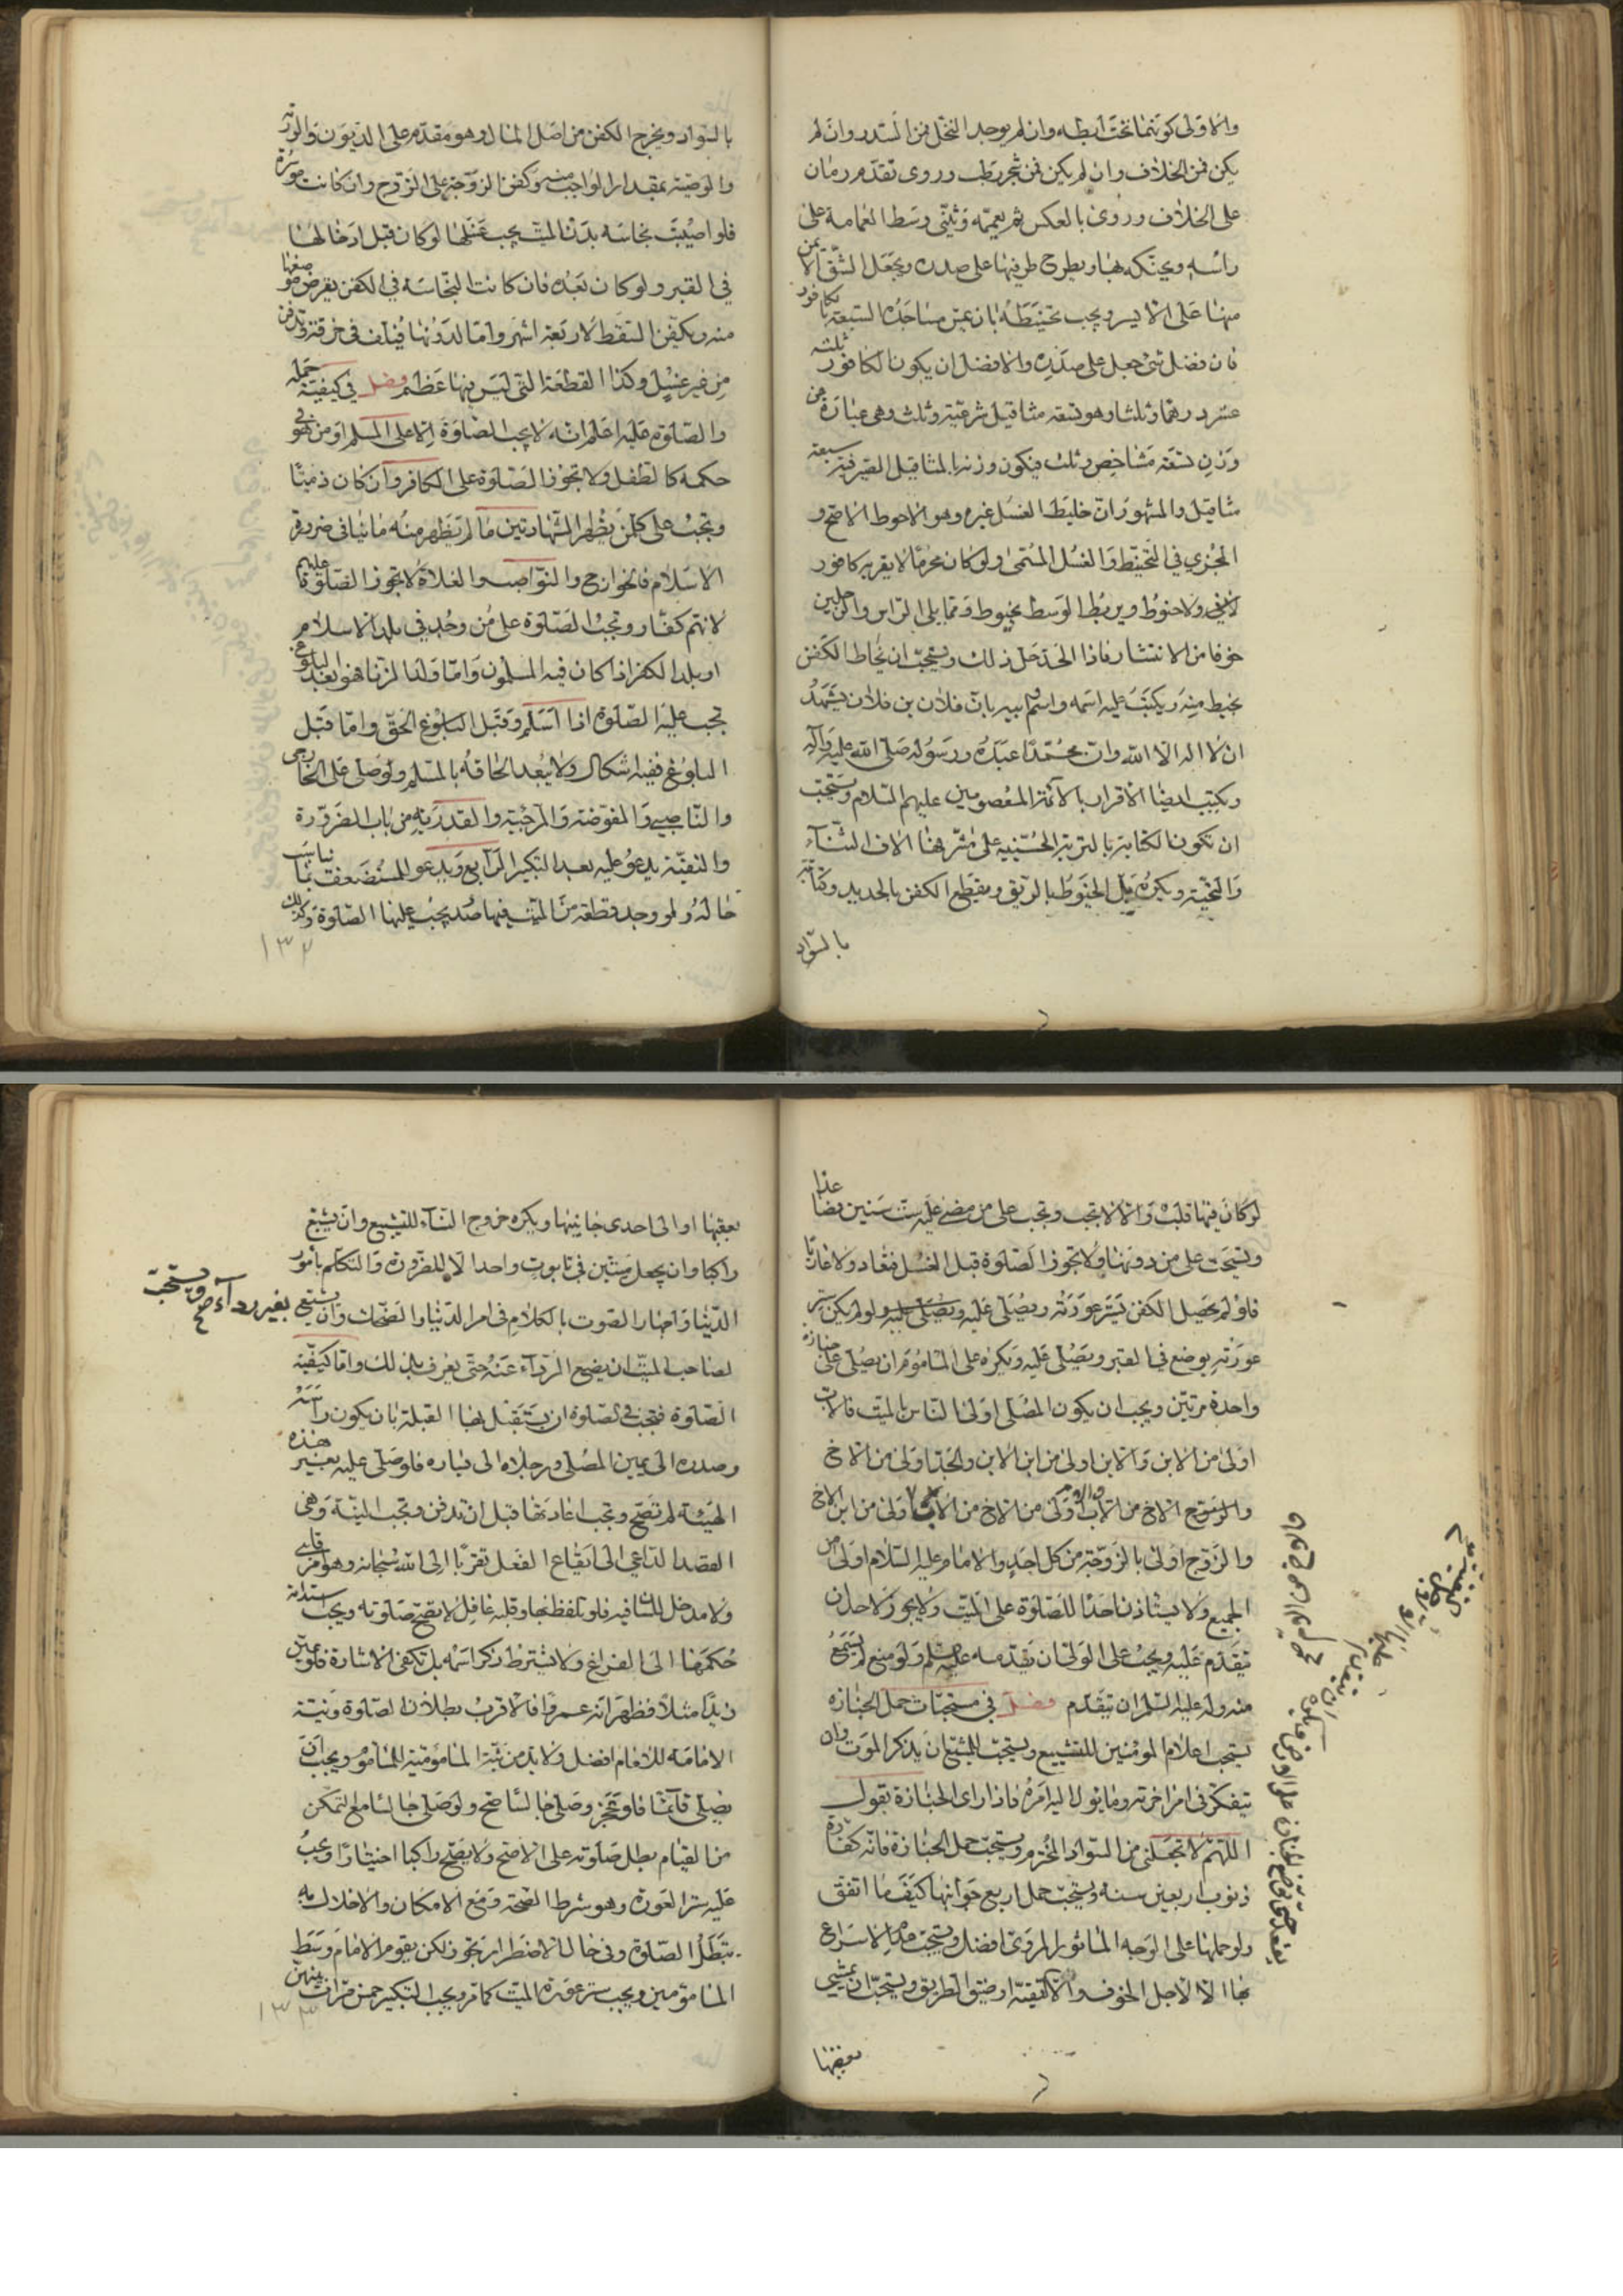 والاولى كونهما تحت ابطه وان لم يوجد النخل فمن السدر وان لم
يكن فمن الخلاف وان لم يكن فمن شجر رطب وروى تقدم رمان
على الخلاف وروى بالعكس ثم يعممه ويثنى وسط العمامة على
راسه ويحنكه بها ويطرح طرفيها على صدره ويجعل الشق الايمن
منها على الايسر ويجب تحنيطه بان يمس مساجده السبعة بكافور
فان فضل شئ جعل على صدره والافضل ان يكون الكافور ثلثة
عشر درهما وثلثا وهو تسعة مثاقيل شرعية وثلث وهى عبارة عن
وزن تسعة مشاخص وثلث فيكون وزنه بالمثاقيل الصيرفية سبعة
مثاقيل والمشهور ان خليط الغسل غيره وهو الاحوط الاصح و
المجزي في التحنيط والغسل المسمى ولو كان محرما لا يقربه كافور
لا في ولا حنوط ويربط الوسط بخيوط ومما يلى الراس والرجلين
خوفا من الانتشار فاذا الحد حل ذلك ويستحب ان يخاط الكفن
بخيط منه ويكتب عليه اسمه واسم ابيه بان فلان بن فلان يشهد
ان لا اله الا الله وان محمدا عبده ورسوله صلى الله عليه وآله
ويكتب ايضا الاقرار بالائمة المعصومين عليهم السلام ويستحب
ان تكون الكتابة بالتربة الحسينية على مشرفها الاف الثناء
والتحية ويكره بل الخيوط بالريق ويقطع الكفن بالحديد وكتابته
بالسواد
بالسواد ويخرج الكفن من اصل المال وهو مقدم على الديون والورثة
والوصية بمقدار الواجب منه وكفن الزوجة على الزوج وان كانت موسرة
فلو اصيبت نجاسة بدن الميت يجب غسلها لو كان قبل ادخالها
في القبر ولو كان بعده فان كانت النجاسة في الكفن يقرض موضعها
منه ويكفن السقط لاربعة اشهر واما لدونها فيلف في خرقة ويدفن
من غير غسل وكذا القطعة التي ليس فيها عظم فصل في كيفية حمله
والصلوة عليه اعلم انه لا يجب الصلوة الا على المسلم او من هو في
حكمه كالطفل ولا تجوز الصلوة على الكافر وان كان ذميا
وتجب على كل من يظهر الشهادتين ما لم يظهر منه ما ينافي ضرورة
الاسلام فالخوارج والنواصب والغلاة لا تجوز الصلوة عليهم
لانهم كفار وتجب الصلوة على من وجد في بلد الاسلام
او بلد الكفر اذا كان فيه المسلمون واما ولد الزنا فهو بعد البلوغ
تجب عليه الصلوة اذا اسلم وقبل البلوغ الحق واما قبل
البلوغ ففيه اشكال ولا يبعد الحاقه بالمسلم ولو صلى على الخارجى
والناصبي والمفوضة والمرجئة والقدرية من باب الضرورة
والتقية يدعو عليه بعد التكبير الرابع ويدعو للمستضعف بما يناسب
حاله ولو وجد قطعة من الميت فيها صدر يجب عليها الصلوة وكذلك
١٣٢
لو كان فيها قلبه والا لا تجب وتجب على من مضى عليه ست سنين فصاعدا
ويستحب على من دونها ولا تجوز الصلوة قبل الغسل فتعاد ولا عاريا
فلو لم يحصل الكفن يستر عورته ويصلى عليه ويصلى عليه ولو لم يكن ستر
عورته يوضع في القبر ويصلى عليه ويكره على الماموم ان يصلى على جنازة
واحدة مرتين ويجب ان يكون المصلى اولى الناس بالميت فالاب
اولى من الابن والابن اولى من ابن الابن والجد اولى من الاخ
والاخ من الاب اولى من الاخ من الام اولى من ابن الاخ
والزوج اولى بالزوجة من كل احد والامام عليه السلام اولى من
الجميع ولا يستاذن احدا للصلوة على الميت ولا يجوز لاحد ان
يتقدم عليه ويجب على الولى ان يقدمه عليه السلم ولو منع لم يسمع
منه وله عليه السلم ان يتقدم فصل في مستحبات حمل الجنازة
يستحب اعلام المومنين للتشييع ويستحب للمشيع ان يذكر الموت وان
يتفكر في امر اخرته وما يؤل اليه امره فاذا راى الجنازة يقول
اللهم لا تجعلني من السواد المخترم ويستحب حمل الجنازة فانه كفارة
ذنوب اربعين سنة ويستحب حمل اربع جوانبها كيف ما اتفق
ولو حملها على الوجه الماثور المروى افضل ويستحب عدم الاسراع
بها الا لاجل الخوف والتقية او ضيق الطريق ويستحب ان يمشي
بعقبها
بعقبها او الى احدى جانبيها ويكره خروج النساء للتشييع وان يشيع
راكبا وان يجعل ميتين في تابوت واحد الا للضرورة والتكلم بامور
الدنيا واجهار الصوت بالكلام في امر الدنيا والضحك وان يشيع بغير رداء صح ويستحب
لصاحب الميت ان يضع الرداء عنه حتى يعرف بذلك واما كيفية
الصلوة فتجب في الصلوة ان يستقبل بها القبلة بان يكون راسه
وصدره الى يمين المصلى ورجلاه الى يساره فلو صلى عليه بغير هذه
الهيئة لم تصح وتجب اعادتها قبل ان تدفن وتجب النية وهى
القصد الداعي الى ايقاع الفعل تقربا الى الله سبحانه وهو امر قلبي
ولا مدخل للسان فيه فلو تلفظ بها وقلبه غافل لا تصح صلوته ويجب استدامة
حكمها الى الفراغ ولا يشترط ذكر اسمه بل تكفي الاشارة فلو عين
زيدا مثلا فظهر انه عمروا فالاقرب بطلان الصلوة ونية
الامامة للامام افضل ولا بد من نية المامومية للماموم ويجب ان
يصلى قائما فلو عجز وصلى جالسا صح ولو صلى جالسا مع التمكن
من القيام بطل صلوته على الاصح ولا يصح راكبا اختيارا ويجب
عليه ستر العورة وهو شرط الصحة ومع الامكان والاخلال به
تبطل الصلوة وفى حال الاضطرار تجوز لكن يقوم الامام وسط
المامومين ويجب ستر عورة الميت كما مر ويجب التكبير خمس مرات بينهن
١٣٣